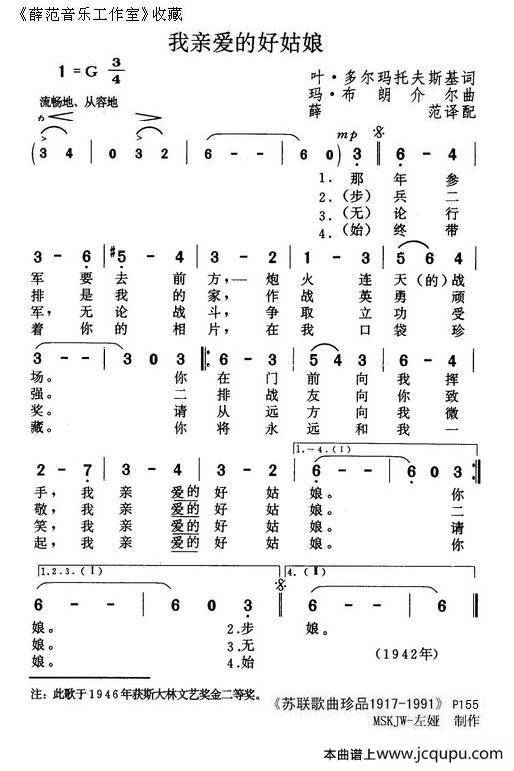 《薛范音乐工作室》收藏
我亲爱的好姑娘
1=G 3/4
叶·多尔玛托夫斯基词
玛·布朗介尔曲
薛范译配
流畅地、从容地
mp
(3 4 | 0 3 2 | 6 - - | 6 0) 3 | 6 - 4 |
1. 那 年 参
2.(步) 兵 二
3.(无) 论 行
4.(始) 终 带
3 - 6 | #5 - 4 | 3 - 2 | 4 - 3 | 5 6 4 |
军 要 去 前 方,— 炮 火 连 天 (的) 战
排 是 我 的 家, 作 战 英 勇 顽
军, 无 论 战 斗, 争 取 立 功 受
着 你 的 相 片, 在 我 口 袋 珍
3 - - | 3 0 3 | 6 - 3 | 5 4 3 | 4 - 3 |
场。 你 在 门 前 向 我 挥
强。 二 排 战 友 向 你 致
奖。 请 从 远 方 向 我 微
藏。 你 将 永 远 和 我 一
1.-4.(Ⅰ)
2 - 7 | 3 - 4 | 3 - 2 | 6 - - | 6 0 3 :|
手, 我 亲 爱的 好 姑 娘。 你
敬, 我 亲 爱的 好 姑 娘。 二
笑, 我 亲 爱的 好 姑 娘。 请
起, 我 亲 爱的 好 姑 娘。 你
1.2.3.(Ⅰ) 4.(Ⅰ)
6 - - | 6 0 3 | 6 - - | 6 - - | 6 0 0 ‖
娘。 2.步 娘。
娘。 3.无
娘。 4.始
(1942年)
注:此歌于1946年获斯大林文艺奖金二等奖。
《苏联歌曲珍品1917-1991》 P155
MSKJW-左娅 制作
本曲谱上www.jcqupu.com